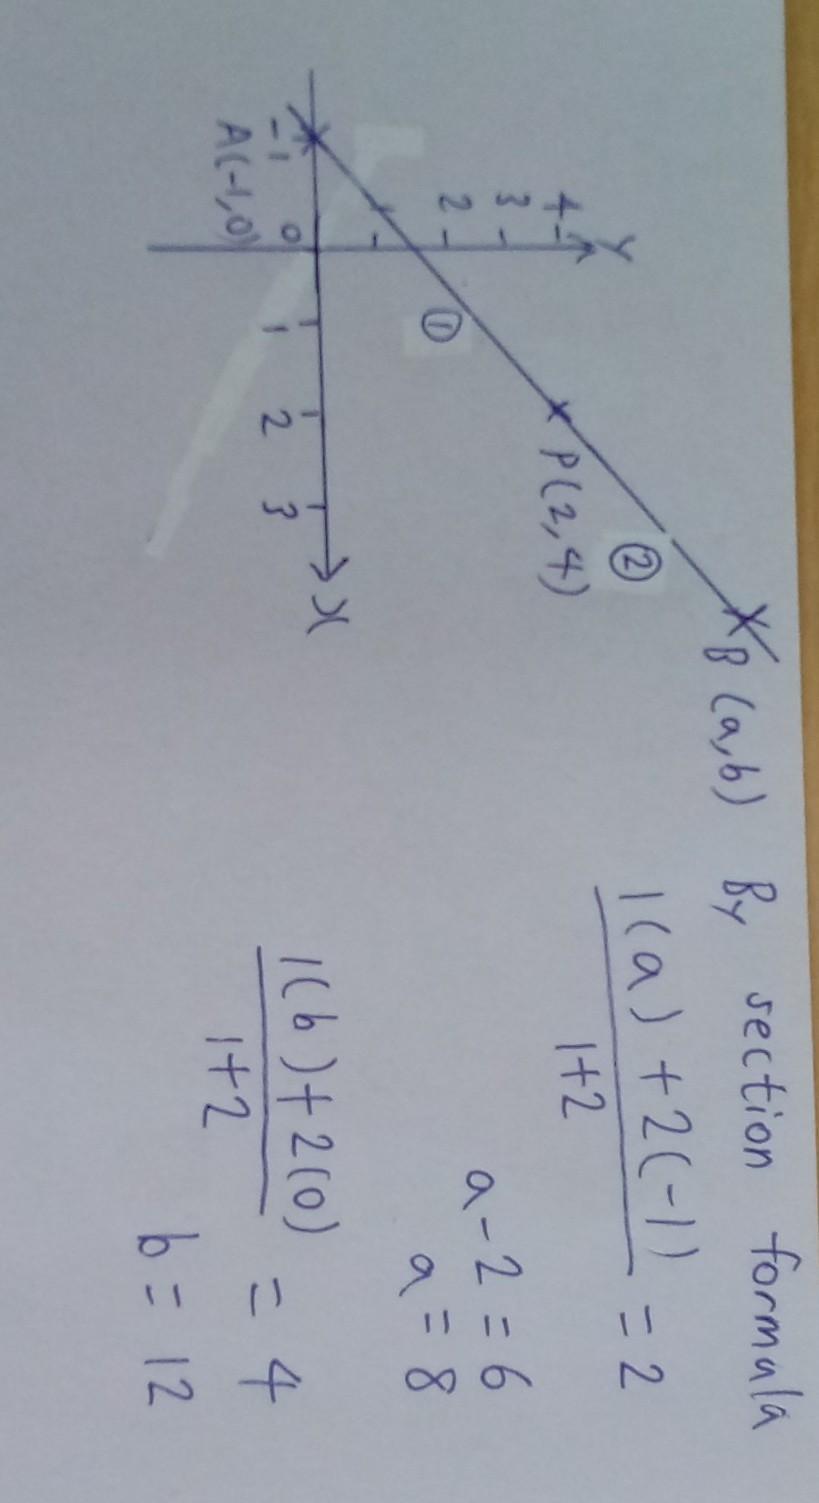 Y
4
3
2
-1
0
1
2
3
X
A(-1,0)
①
P(2,4)
②
B(a,b)
By section formula
1(a)+2(-1)
1+2
= 2
a-2 = 6
a = 8
1(b)+2(0)
1+2
= 4
b = 12